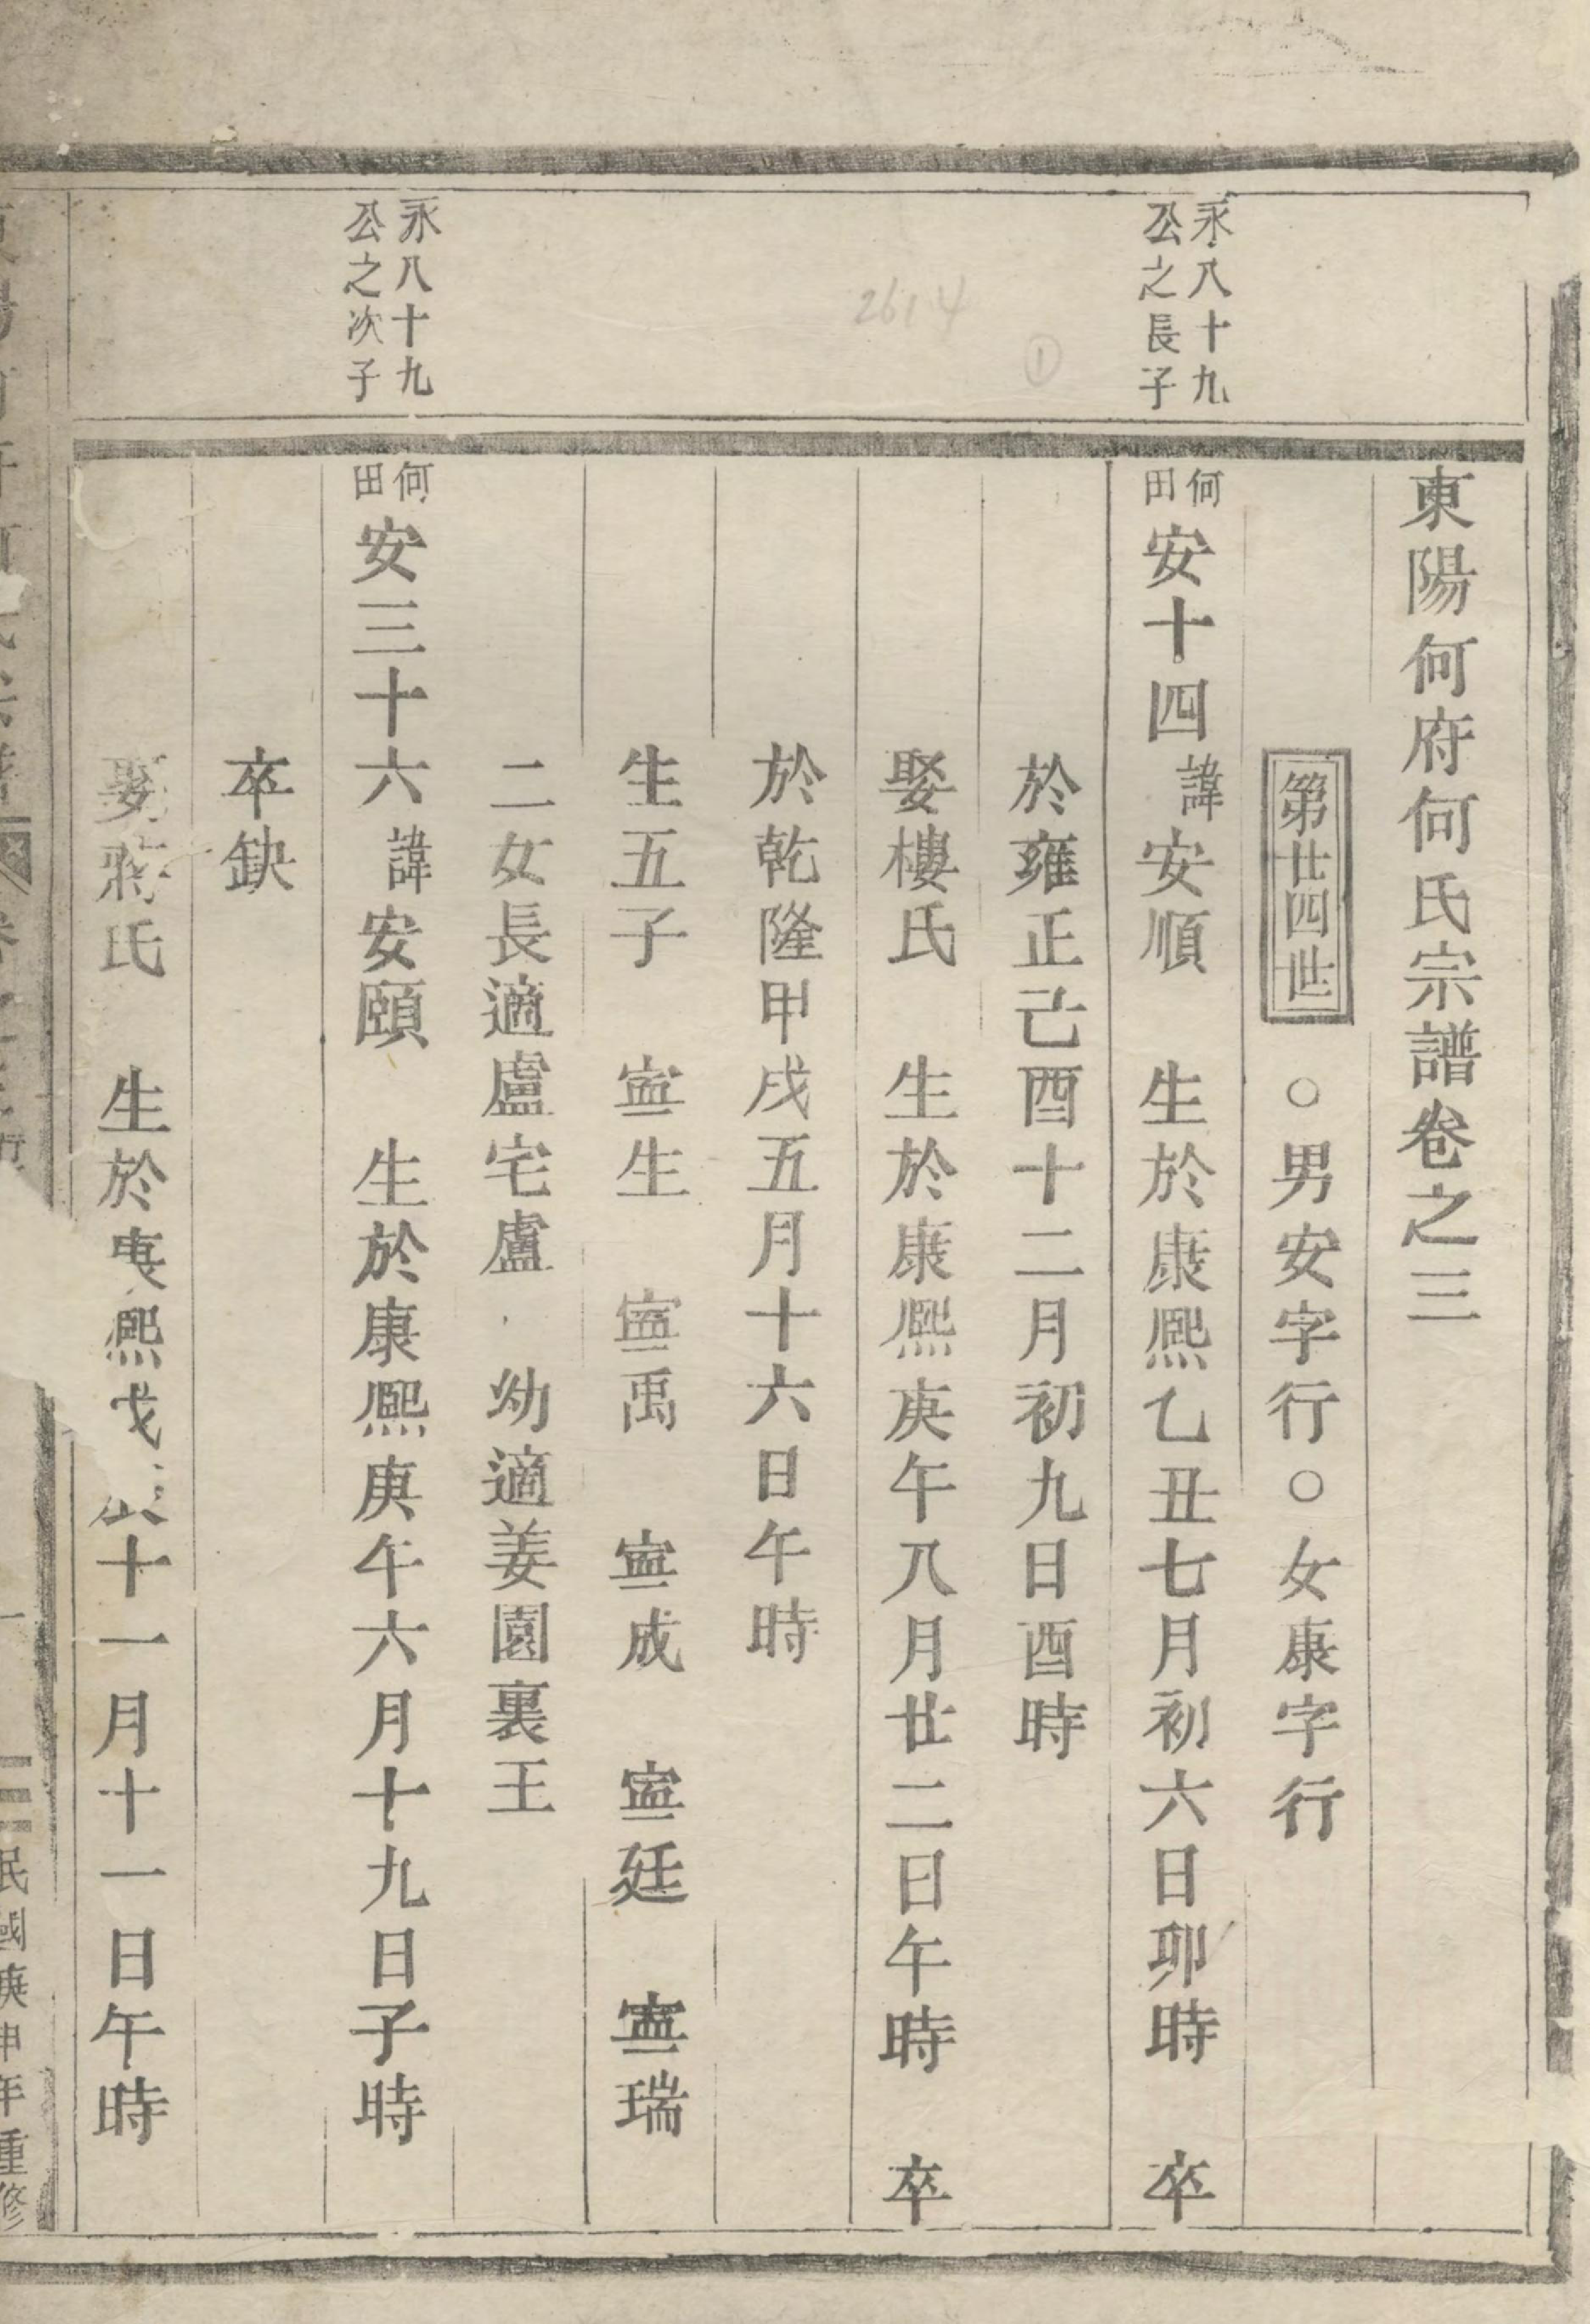 東陽何府何氏宗譜卷之三
第廿四世 ○男安字行○女康字行
永八十九
公之長子
何田安十四諱安順 生於康熙乙丑七月初六日卯時 卒
於雍正己酉十二月初九日酉時
娶樓氏 生於康熙庚午八月廿二日午時 卒
2614
①
於乾隆甲戌五月十六日午時
生五子 寍生 寍禹 寍成 寍廷 寍瑞
二女長適盧宅盧 幼適姜園裏王
永八十九
公之次子
何田安三十六諱安頤 生於康熙庚午六月十九日子時
卒缺
娶蔣氏 生於康熙戊 十一月十一日午時
民國庚申年重修